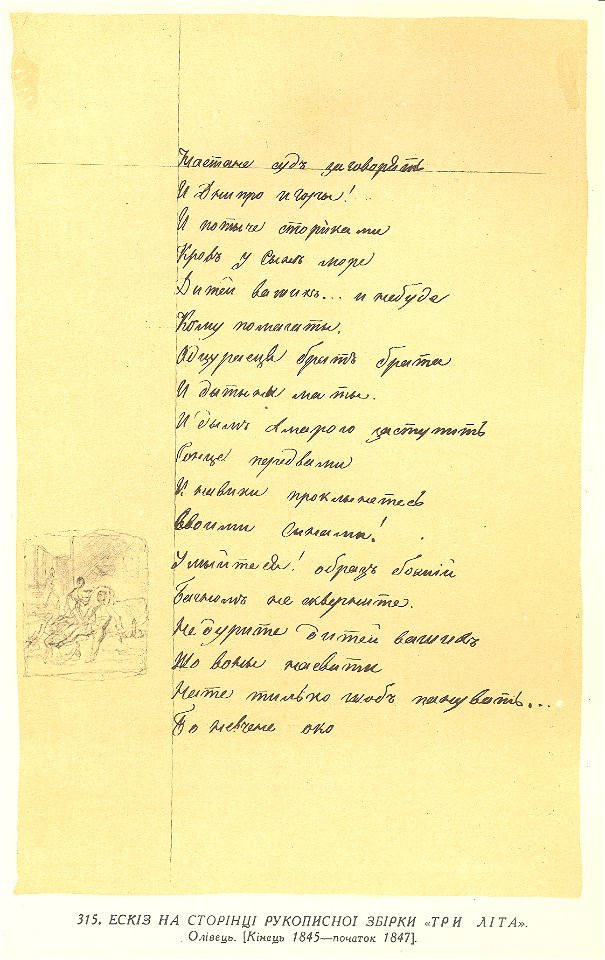 Настане судъ заговорять
И Днипро и горы!
И потыче сториками
Кровъ у сынѣ море
Дитей вашихъ... и небуде
Кому помагаты.
Одцураєцця братъ брата
И дытыны маты.
И дымъ хмарого заступить
Сонце передвами
И навики проклынетесь
Своими сынами!
Умыйтеся! образъ божий
Багномъ не скверните.
Не дурите дитей вашихъ
Що воны насвити
Нате тилько щобъ пануватъ...
Бо невчене око
315. ЕСКІЗ НА СТОРІНЦІ РУКОПИСНОЇ ЗБІРКИ «ТРИ ЛІТА».
Олівець. [Кінець 1845—початок 1847].